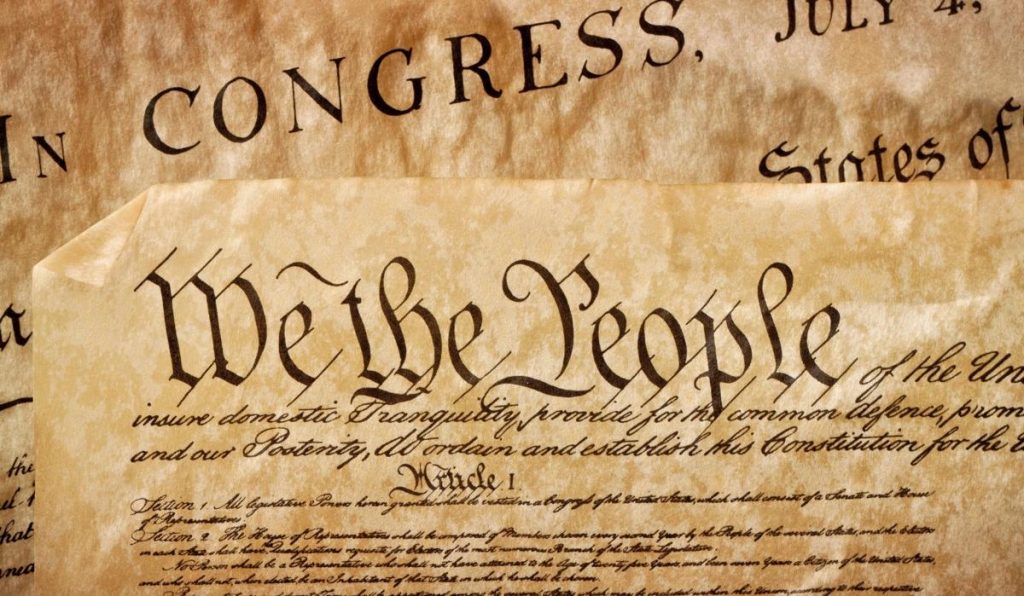 In CONGRESS, JULY 4,
States of
We the People of the Un
insure domestic Tranquility, provide for the common defence, prom
and our Posterity, do ordain and establish this Constitution for the
Article I.
Section 1. All legislative Powers herein granted shall be vested in a Congress of the United States, which shall consist of a Senate and House
of Representatives.
Section 2. The House of Representatives shall be composed of Members chosen every second Year by the People of the several States, and the Electors
in each State shall have Qualifications requisite for Electors of the most numerous Branch of the State Legislature.
No Person shall be a Representative who shall not have attained to the Age of twenty five Years, and been seven Years a Citizen of the United States,
and who shall not, when elected, be an Inhabitant of that State in which he shall be chosen.
among the several States which may be included within this Union, according to their respective
the
hat